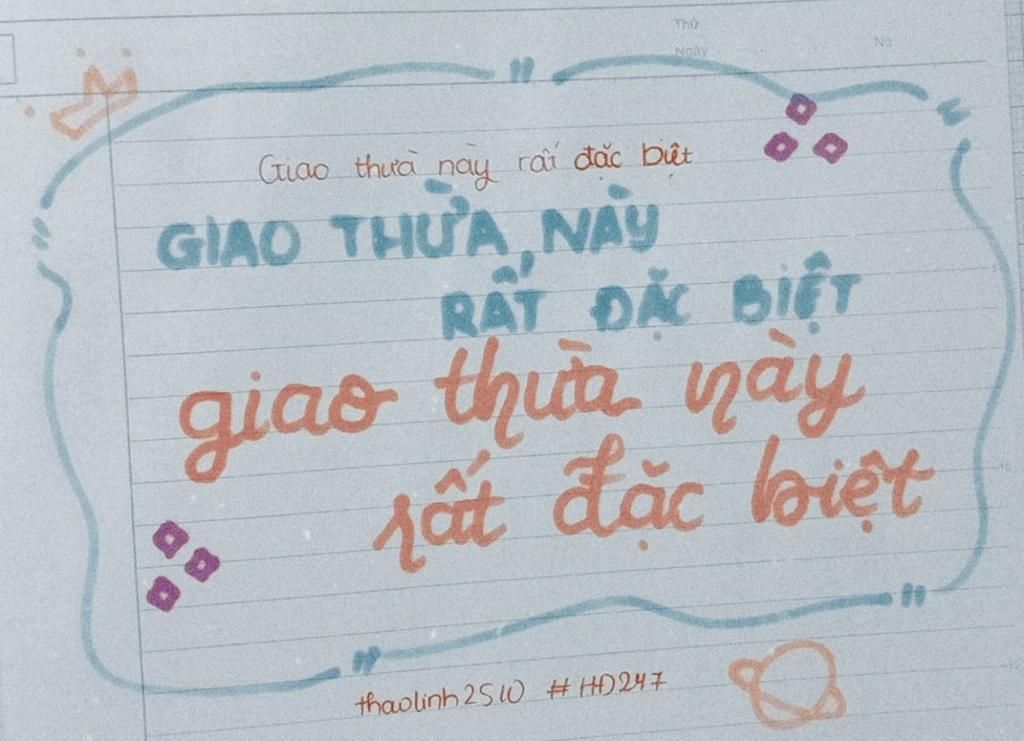 Thứ
Ngày
No.
Giao thừa này rất đặc biệt
GIAO THỪA NÀY
RẤT ĐẶC BIỆT
giao thừa này
rất đặc biệt
thaolinh2510 #HD247